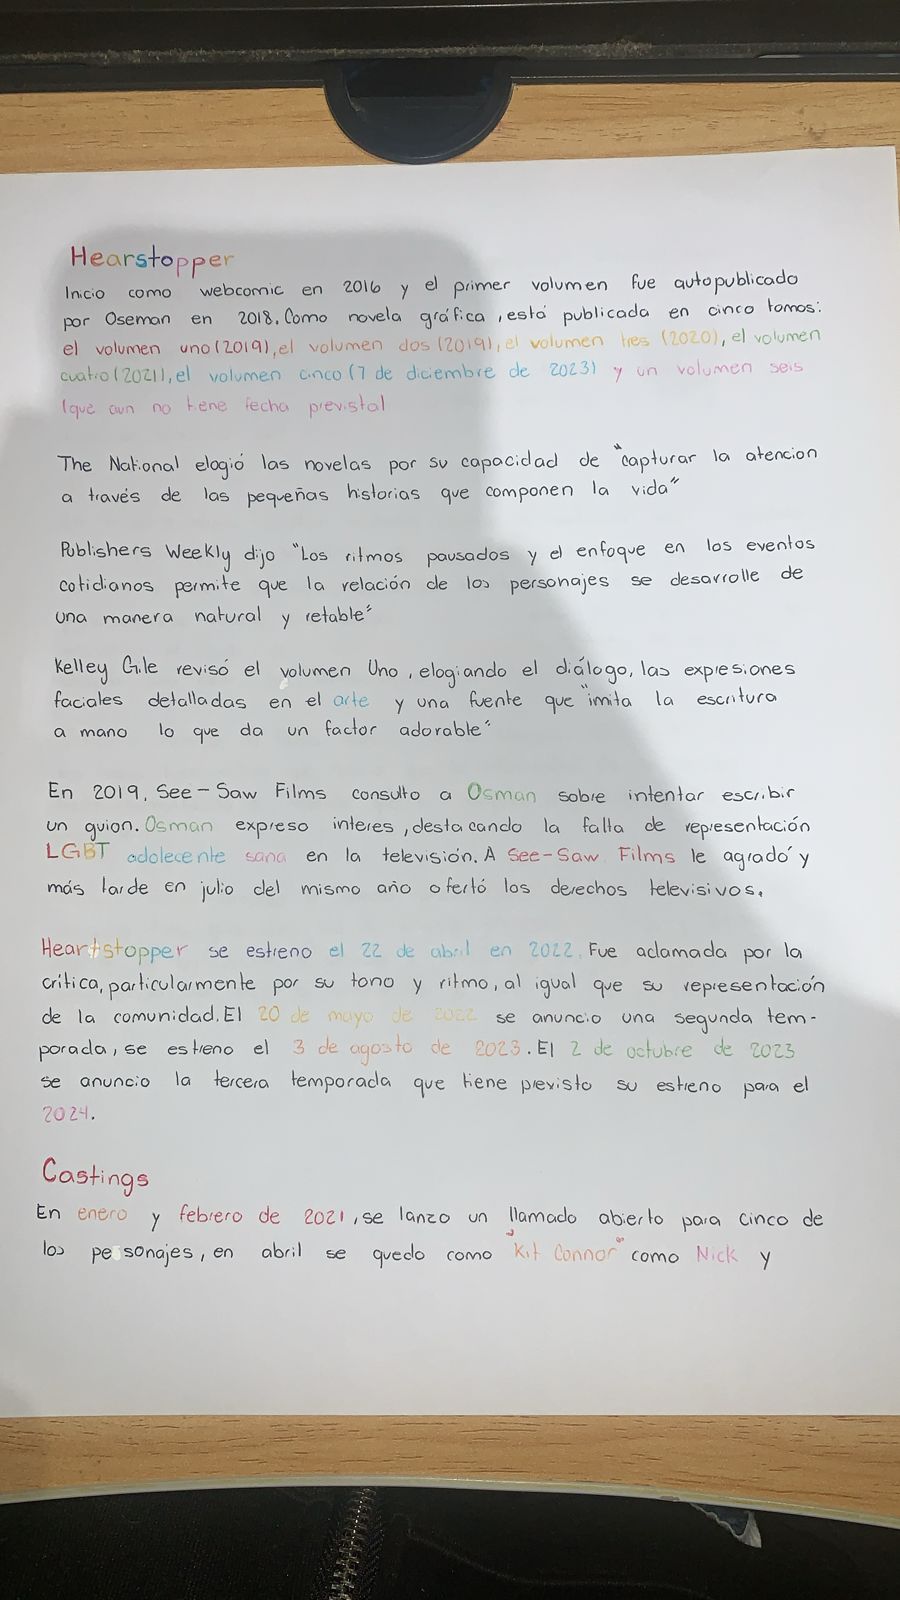 Hearstopper
Inicio como webcomic en 2016 y el primer volumen fue autopublicado
por Oseman en 2018. Como novela gráfica, está publicada en cinco tomos:
el volumen uno (2019), el volumen dos (2019), el volumen tres (2020), el volumen
cuatro (2021), el volumen cinco (7 de diciembre de 2023) y un volumen seis
(que aun no tiene fecha prevista)
The National elogió las novelas por su capacidad de "capturar la atencion
a través de las pequeñas historias que componen la vida"
Publishers Weekly dijo "Los ritmos pausados y el enfoque en los eventos
cotidianos permite que la relación de los personajes se desarrolle de
una manera natural y retable"
Kelley Gile revisó el volumen Uno, elogiando el diálogo, las expresiones
faciales detalladas en el arte y una fuente que "imita la escritura
a mano lo que da un factor adorable"
En 2019, See-Saw Films consulto a Osman sobre intentar escribir
un guion. Osman expreso interes, destacando la falta de representación
LGBT adolecente sana en la televisión. A See-Saw Films le agradó y
más tarde en julio del mismo año ofertó los derechos televisivos.
Heartstopper se estreno el 22 de abril en 2022. Fue aclamada por la
crítica, particularmente por su tono y ritmo, al igual que su representación
de la comunidad. El 20 de mayo de 2022 se anuncio una segunda tem-
porada, se estreno el 3 de agosto de 2023. El 2 de octubre de 2023
se anuncio la tercera temporada que tiene previsto su estreno para el
2024.
Castings
En enero y febrero de 2021, se lanzo un llamado abierto para cinco de
los personajes, en abril se quedo como "Kit Connor" como Nick y